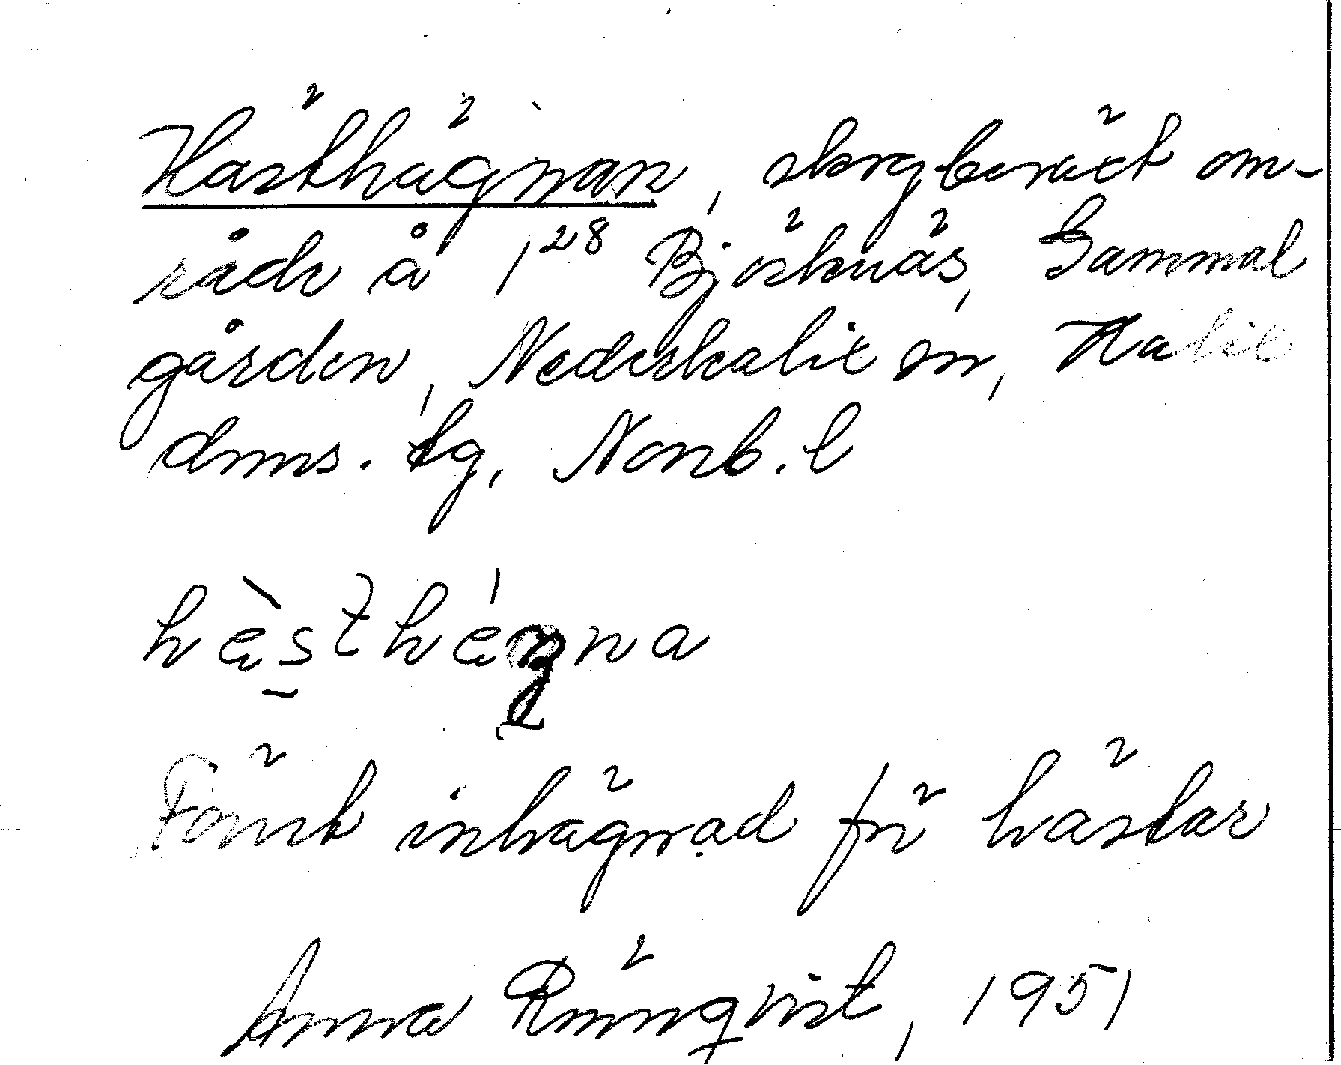 Hästhägnan, skogbeväxt om-
råde å 1²⁸ Björknäs, Gammal
gården, Nederkalix sn, Kalix
dms. tg, Norrb. l
hὲsthέgna
Förut inhägnad för hästar
Anna Rönnqvist, 1951